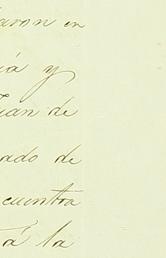 aron en
ia y
Juan de
ado de
cuentra
Tá la